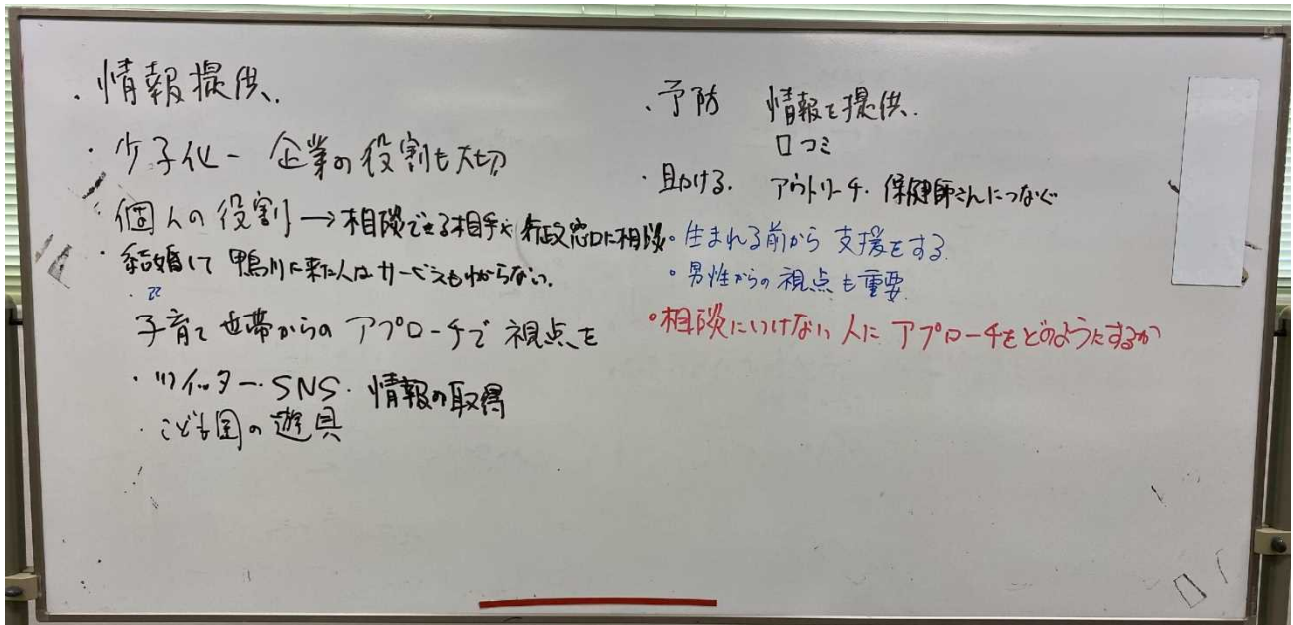 ・情報提供.
・少子化ー 企業の役割も大切
・個人の役割 → 相談できる相手や 行政窓口に相談
・結婚して 鴨川に来た人は サービスもわからない.
子育て世帯からの アプローチで 視点を
・ツイッター・SNS・ 情報の取得
・こども園の遊具
・予防 情報を提供.
口コミ
・助ける. アウトリーチ・保健師さんにつなぐ
・生まれる前から 支援をする
・男性からの視点も重要
・相談にいけない人に アプローチをどのようにするか